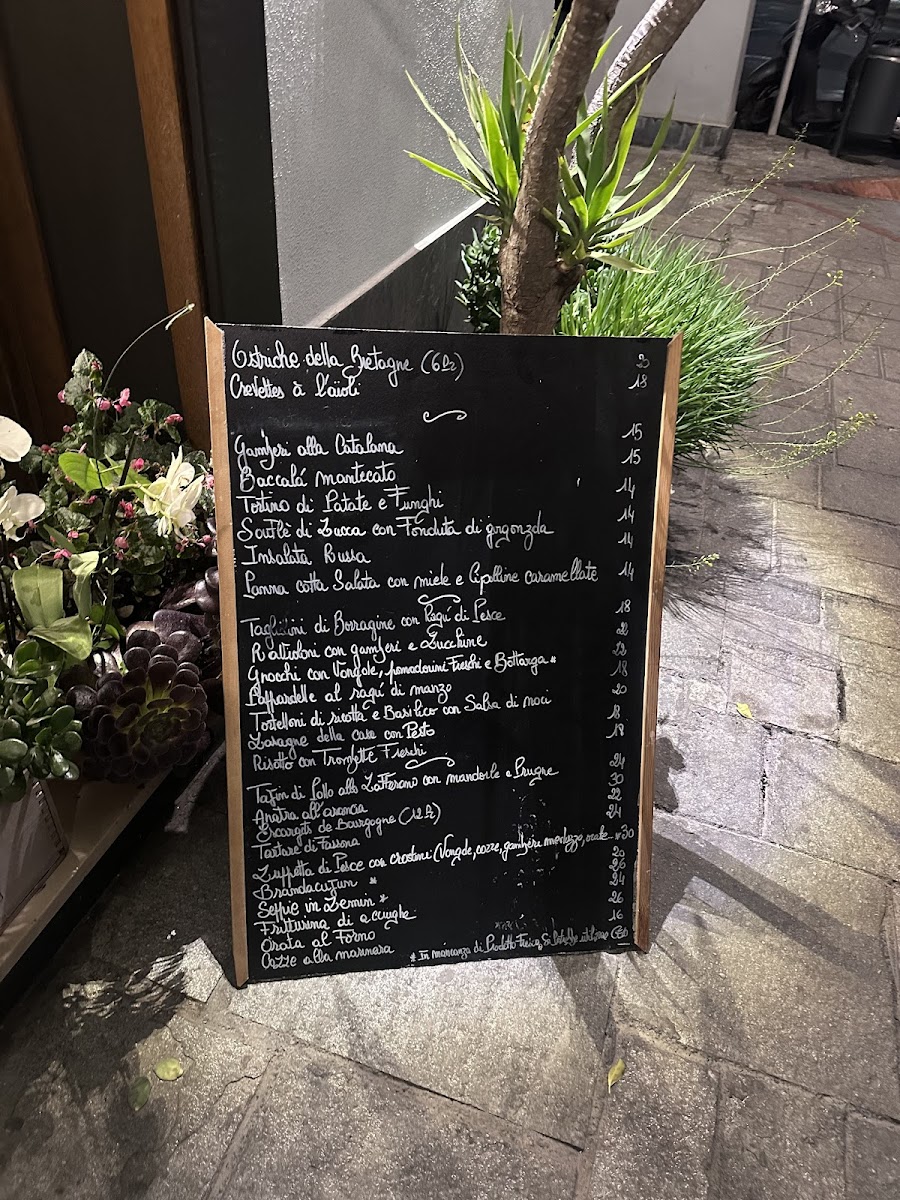 Ostriche della Bretagne (6 Pz)
Crevettes à l'aïoli 18
Gamberi alla Catalana 15
Baccalá mantecato 15
Tortino di Patate e Funghi 14
Souflè di Zucca con Fonduta di gorgonzola 14
Insalata Russa 14
Panna cotta Salata con miele e Cipolline caramellate 14
Tagliolini di Borragine con Ragú di Pesce 18
Raltioloni con gamberi e Zucchine 22
Gnocchi con Vongole, pomodorini Freschi e Bottarga * 22
Pappardelle al ragú di manzo 18
Tortelloni di ricotta e Basilico con Salsa di noci 20
Lasagne della casa con Pesto 18
Risotto con Trombette Freschi 18
Tajin di Pollo allo Zafferano con mandorle e Prugne 24
Anatra all'arancia 30
Escargots de Bourgogne (12 Pz) 22
Tartare di Fassona 24
Zuppetta di Pesce con crostini (Vongole, cozze, gamberi, merluzzo, ... * 30
Brandacujun * 20
Seppie in Zemin * 26
Fritturina di acciughe 24
Orata al Forno 26
Cozze alla marinara 16
* In mancanza di Prodotto Fresco,